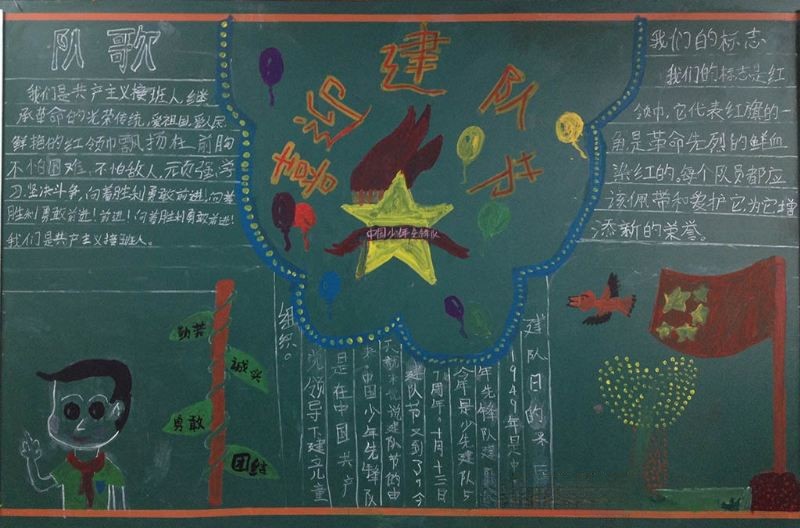 队歌
我们是共产主义接班人,继
承革命的光荣传统,爱祖国,爱人民
鲜艳的红领巾飘扬在前胸
不怕困难,不怕敌人,顽强学
习,坚决斗争,向着胜利勇敢前进,向着
胜利勇敢前进!前进!向着胜利勇敢前进!
我们是共产主义接班人。
喜迎建队节
中国少年先锋队
我们的标志
我们的标志是红
领巾,它代表红旗的一
角是革命先烈的鲜血
染红的,每个队员都应
该佩带和爱护它,为它增
添新的荣誉。
勤劳
诚实
勇敢
团结
建队日的来
1949年是中
年先锋队建
今年是少先建队
周年,十月十三日
建队节又到了,今
说建队节的由
来,中国少年先锋队
是在中国共产
党领导下建立儿童
组织。